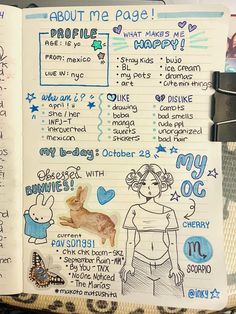 ABOUT Me PAGe!
PROFILE
AGE: 16 yo
FROM: mexico
LIVE IN: nyc
WHAT MAKES ME
HAPPY!
• Stray Kids
• BL
• my pets
• art
• bujo
• ice cream
• dramas
• cute mini things
who am i?
• april
• she / her
• INFJ-T
• introverted
• mexican
LIKE
• drawing
• boba
• manga
• sweets
• stickers
DISLIKE
• carrots
• bad smells
• ppl
• unorganized
• bad hair
my b-day: October 28
Obsessed WITH
BUNNIES!
current
fav songs!
• Chk chk boom - SKZ
• September Rain
• By You - TNX
• No One Noticed
- The Marías
# makoto matsushita
MY
OC
CHERRY
SCORPIO
@inky